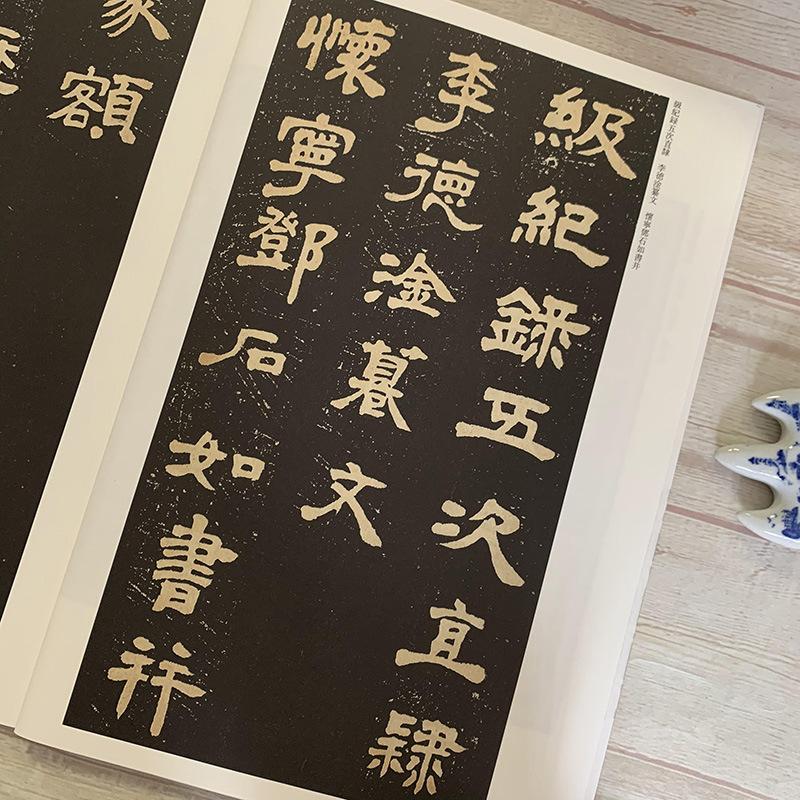 級紀録五次直隷　李徳淦纂文　懐寧鄧石如書并
級紀錄五次直隸
李德淦纂文
懷寧鄧石如書并
額